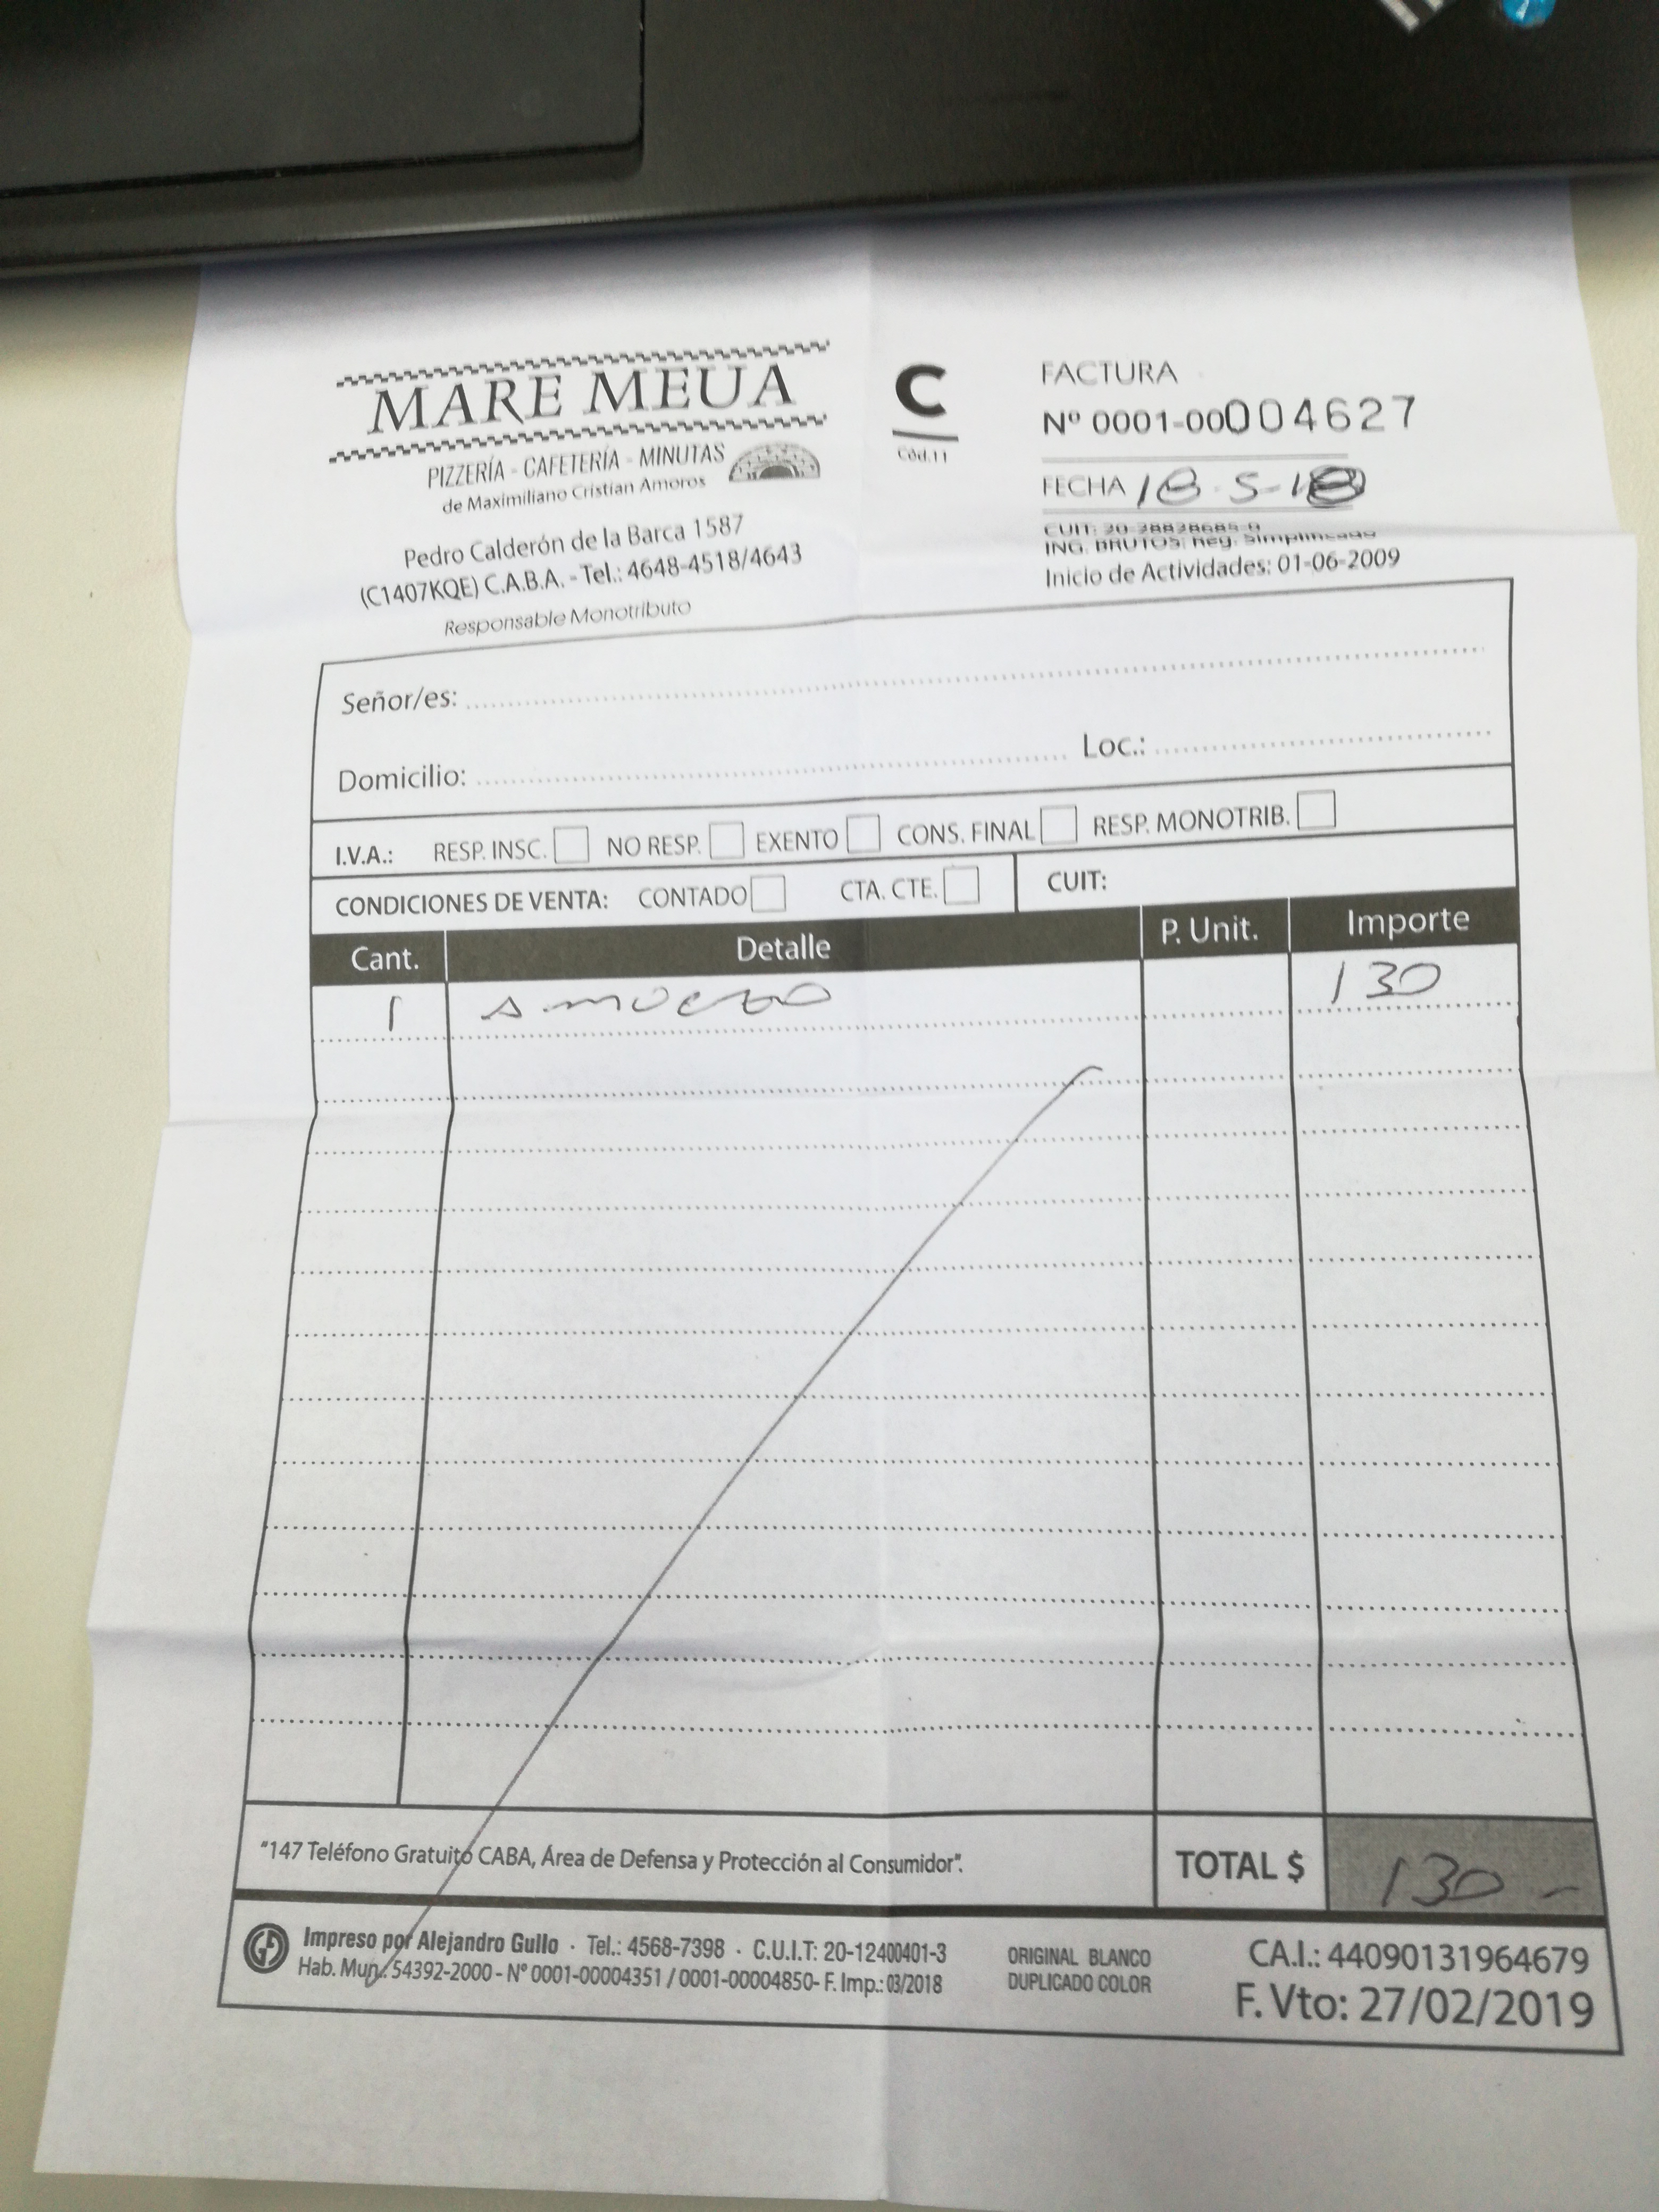 MARE MEUA
PIZZERÍA - CAFETERÍA - MINUTAS
de Maximiliano Cristian Amoros
Pedro Calderón de la Barca 1587
(C1407KQE) C.A.B.A. - Tel.: 4648-4518/4643
Responsable Monotributo
C
Cód.11
FACTURA
Nº 0001-00004627
FECHA 18-5-18
CUIT:
ING. BRUTOS: Reg. Simplificado
Inicio de Actividades: 01-06-2009
Señor/es:
Domicilio: Loc.:
I.V.A.: RESP. INSC. NO RESP. EXENTO CONS. FINAL RESP. MONOTRIB.
CONDICIONES DE VENTA: CONTADO CTA. CTE. CUIT:
Cant. Detalle P. Unit. Importe
1 130
"147 Teléfono Gratuito CABA, Área de Defensa y Protección al Consumidor".
TOTAL $ 130 -
Impreso por Alejandro Gullo · Tel.: 4568-7398 · C.U.I.T: 20-12400401-3
Hab. Mun.: 54392-2000 - Nº 0001-00004351 / 0001-00004850- F. Imp.: 03/2018
ORIGINAL BLANCO
DUPLICADO COLOR
CA.I.: 44090131964679
F. Vto: 27/02/2019